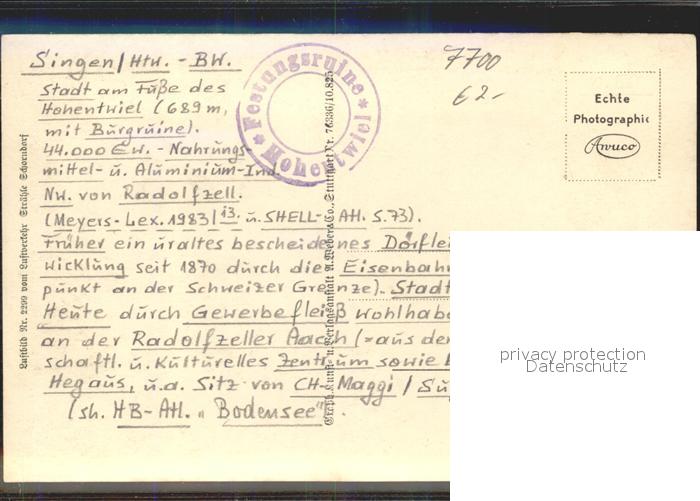 Singen/Htw. - BW.
7700
€ 2.-
Stadt am Fuße des
Hohentwiel (689 m,
mit Burgruine).
44.000 Ew. - Nahrungs-
mittel- u. Aluminium-Ind.
Nw. von Radolfzell.
(Meyers-Lex. 1983/13. u. SHELL-Atl. S. 73).
Früher ein uraltes bescheidenes Dörflei
wicklung seit 1870 durch die Eisenbahn
punkt an der Schweizer Grenze). Stadt
Heute durch Gewerbefleiß wohlhabe
an der Radolfzeller Aach (=aus der
schaftl. u. kulturelles Zentrum sowie
Hegaus, u.a. Sitz von CH-Maggi /
(sh. HB-Atl. „Bodensee").
Festungsruine
* Hohentwiel *
Echte
Photographie
Awuco
Luftbild Nr. 2299 vom Luftverkehr Strähle Schorndorf
Graph. Kunst- u. Verlagsanstalt A. Weber & Co., Stuttgart Nr. 76336/10.825
privacy protection
Datenschutz